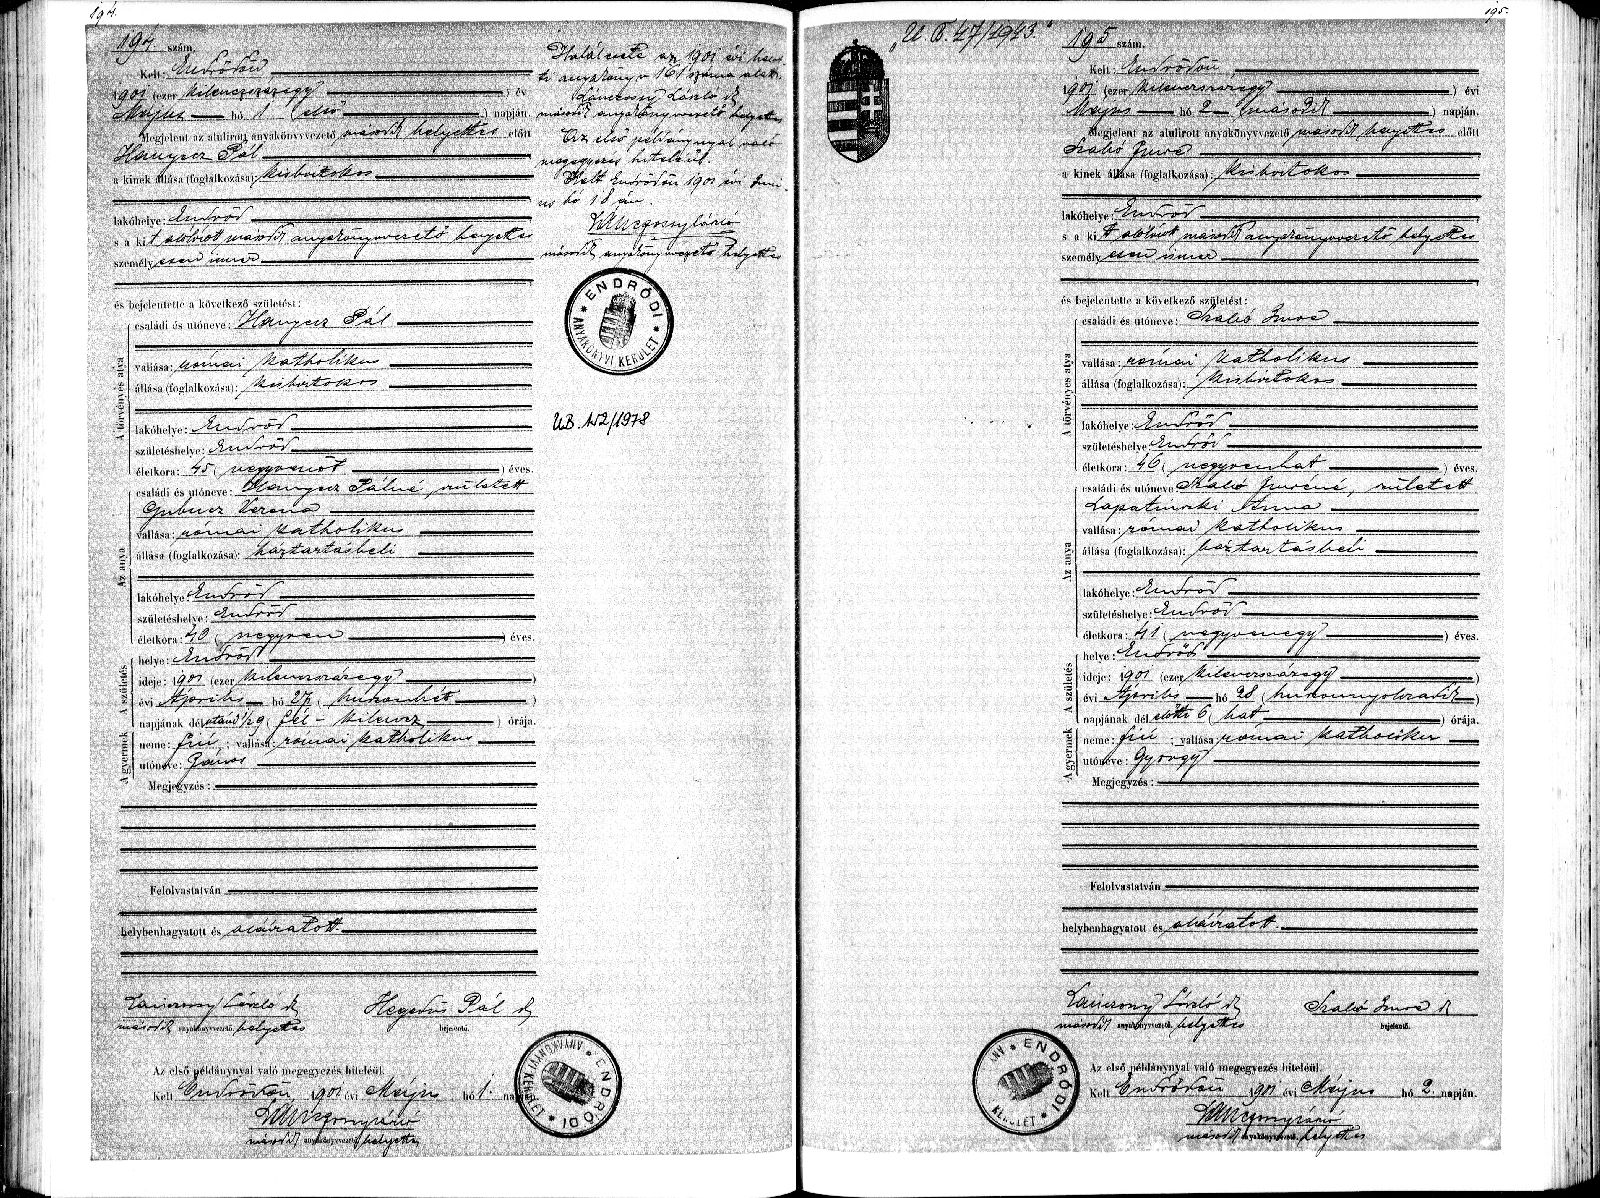 194.
194. szám.
Kelt: Endrődön
1901 (ezer kilenczszázegy) évi
Május hó 1 (első) napján.
Megjelent az alulirott anyakönyvvezető másod helyettes előtt
Hanyecz Pál
a kinek állása (foglalkozása): kisbirtokos
lakóhelye: Endrőd
s a kit alólirott másod anyakönyvvezető helyettes
személyesen ismer
és bejelentette a következő születést:
A törvényes atya
családi és utóneve: Hanyecz Pál
vallása: római katholikus
állása (foglalkozása): kisbirtokos
lakóhelye: Endrőd
születéshelye: Endrőd
életkora: 45 (negyvenöt) éves.
Az anya
családi és utóneve: Hanyecz Pálné, született
Gubucz Verona
vallása: római katholikus
állása (foglalkozása): háztartásbeli
lakóhelye: Endrőd
születéshelye: Endrőd
életkora: 40 (negyven) éves.
A születés
helye: Endrőd
ideje: 1901 (ezer kilenczszázegy)
évi Április hó 27 (huszonhét)
napjának délutáni ½9 (fél-kilencz) órája.
A gyermek
neme: fiú; vallása: római katholikus
utóneve: János
Megjegyzés:
Felolvastatván
helybenhagyatott és aláíratott.
Lánczony László sk
másod anyakönyvvezető, helyettes
Hegedüs Pál sk
bejelentő.
Az első példánynyal való megegyezés hiteléül.
Kelt Endrődön, 1901 évi Május hó 1. napján
másod anyakönyvvezető, helyettes
Halálesete az 1901 évi halot-
ti anyakönyv 161 száma alatt.
Lánczony László sk
másod anyakönyvvezető helyettes
Az első példánynyal való
megegyezés hiteléül.
Kelt Endrődön 1901 évi Juni-
us hó 18 án.
másod anyakönyvvezető helyettes
ENDRŐDI
ANYAKÖNYVI KERÜLET
UB. 152/1978
ENDRŐDI
ANYAKÖNYVI KERÜLET
195.
„U B. 47/1943"
195 szám.
Kelt: Endrődön,
1901 (ezer kilenczszázegy) évi
Május hó 2 (második) napján.
Megjelent az alulirott anyakönyvvezető másod helyettes előtt
Szabó Imre
a kinek állása (foglalkozása): kisbirtokos
lakóhelye: Endrőd
s a kit alólirott másod anyakönyvvezető helyettes
személyesen ismer
és bejelentette a következő születést:
A törvényes atya
családi és utóneve: Szabó Imre
vallása: római katholikus
állása (foglalkozása): kisbirtokos
lakóhelye: Endrőd
születéshelye: Endrőd
életkora: 46 (negyvenhat) éves.
Az anya
családi és utóneve: Szabó Imréné, született
Lapatinszki Anna
vallása: római katholikus
állása (foglalkozása): háztartásbeli
lakóhelye: Endrőd
születéshelye: Endrőd
életkora: 41 (negyvenegy) éves.
A születés
helye: Endrőd
ideje: 1901 (ezer kilenczszázegy)
évi Április hó 28 (huszonnyolczadik)
napjának délelőtti 6 (hat) órája.
A gyermek
neme: fiú; vallása római katholikus
utóneve: György
Megjegyzés:
Felolvastatván
helybenhagyatott és aláíratott.
Lánczony László sk
másod anyakönyvvezető, helyettes
Szabó Imre sk
bejelentő.
ENDRŐDI
ANY KERÜLET
Az első példánynyal való megegyezés hiteléül.
Kelt Endrődön 1901 évi Május hó 2. napján.
másod anyakönyvvezető, helyettes